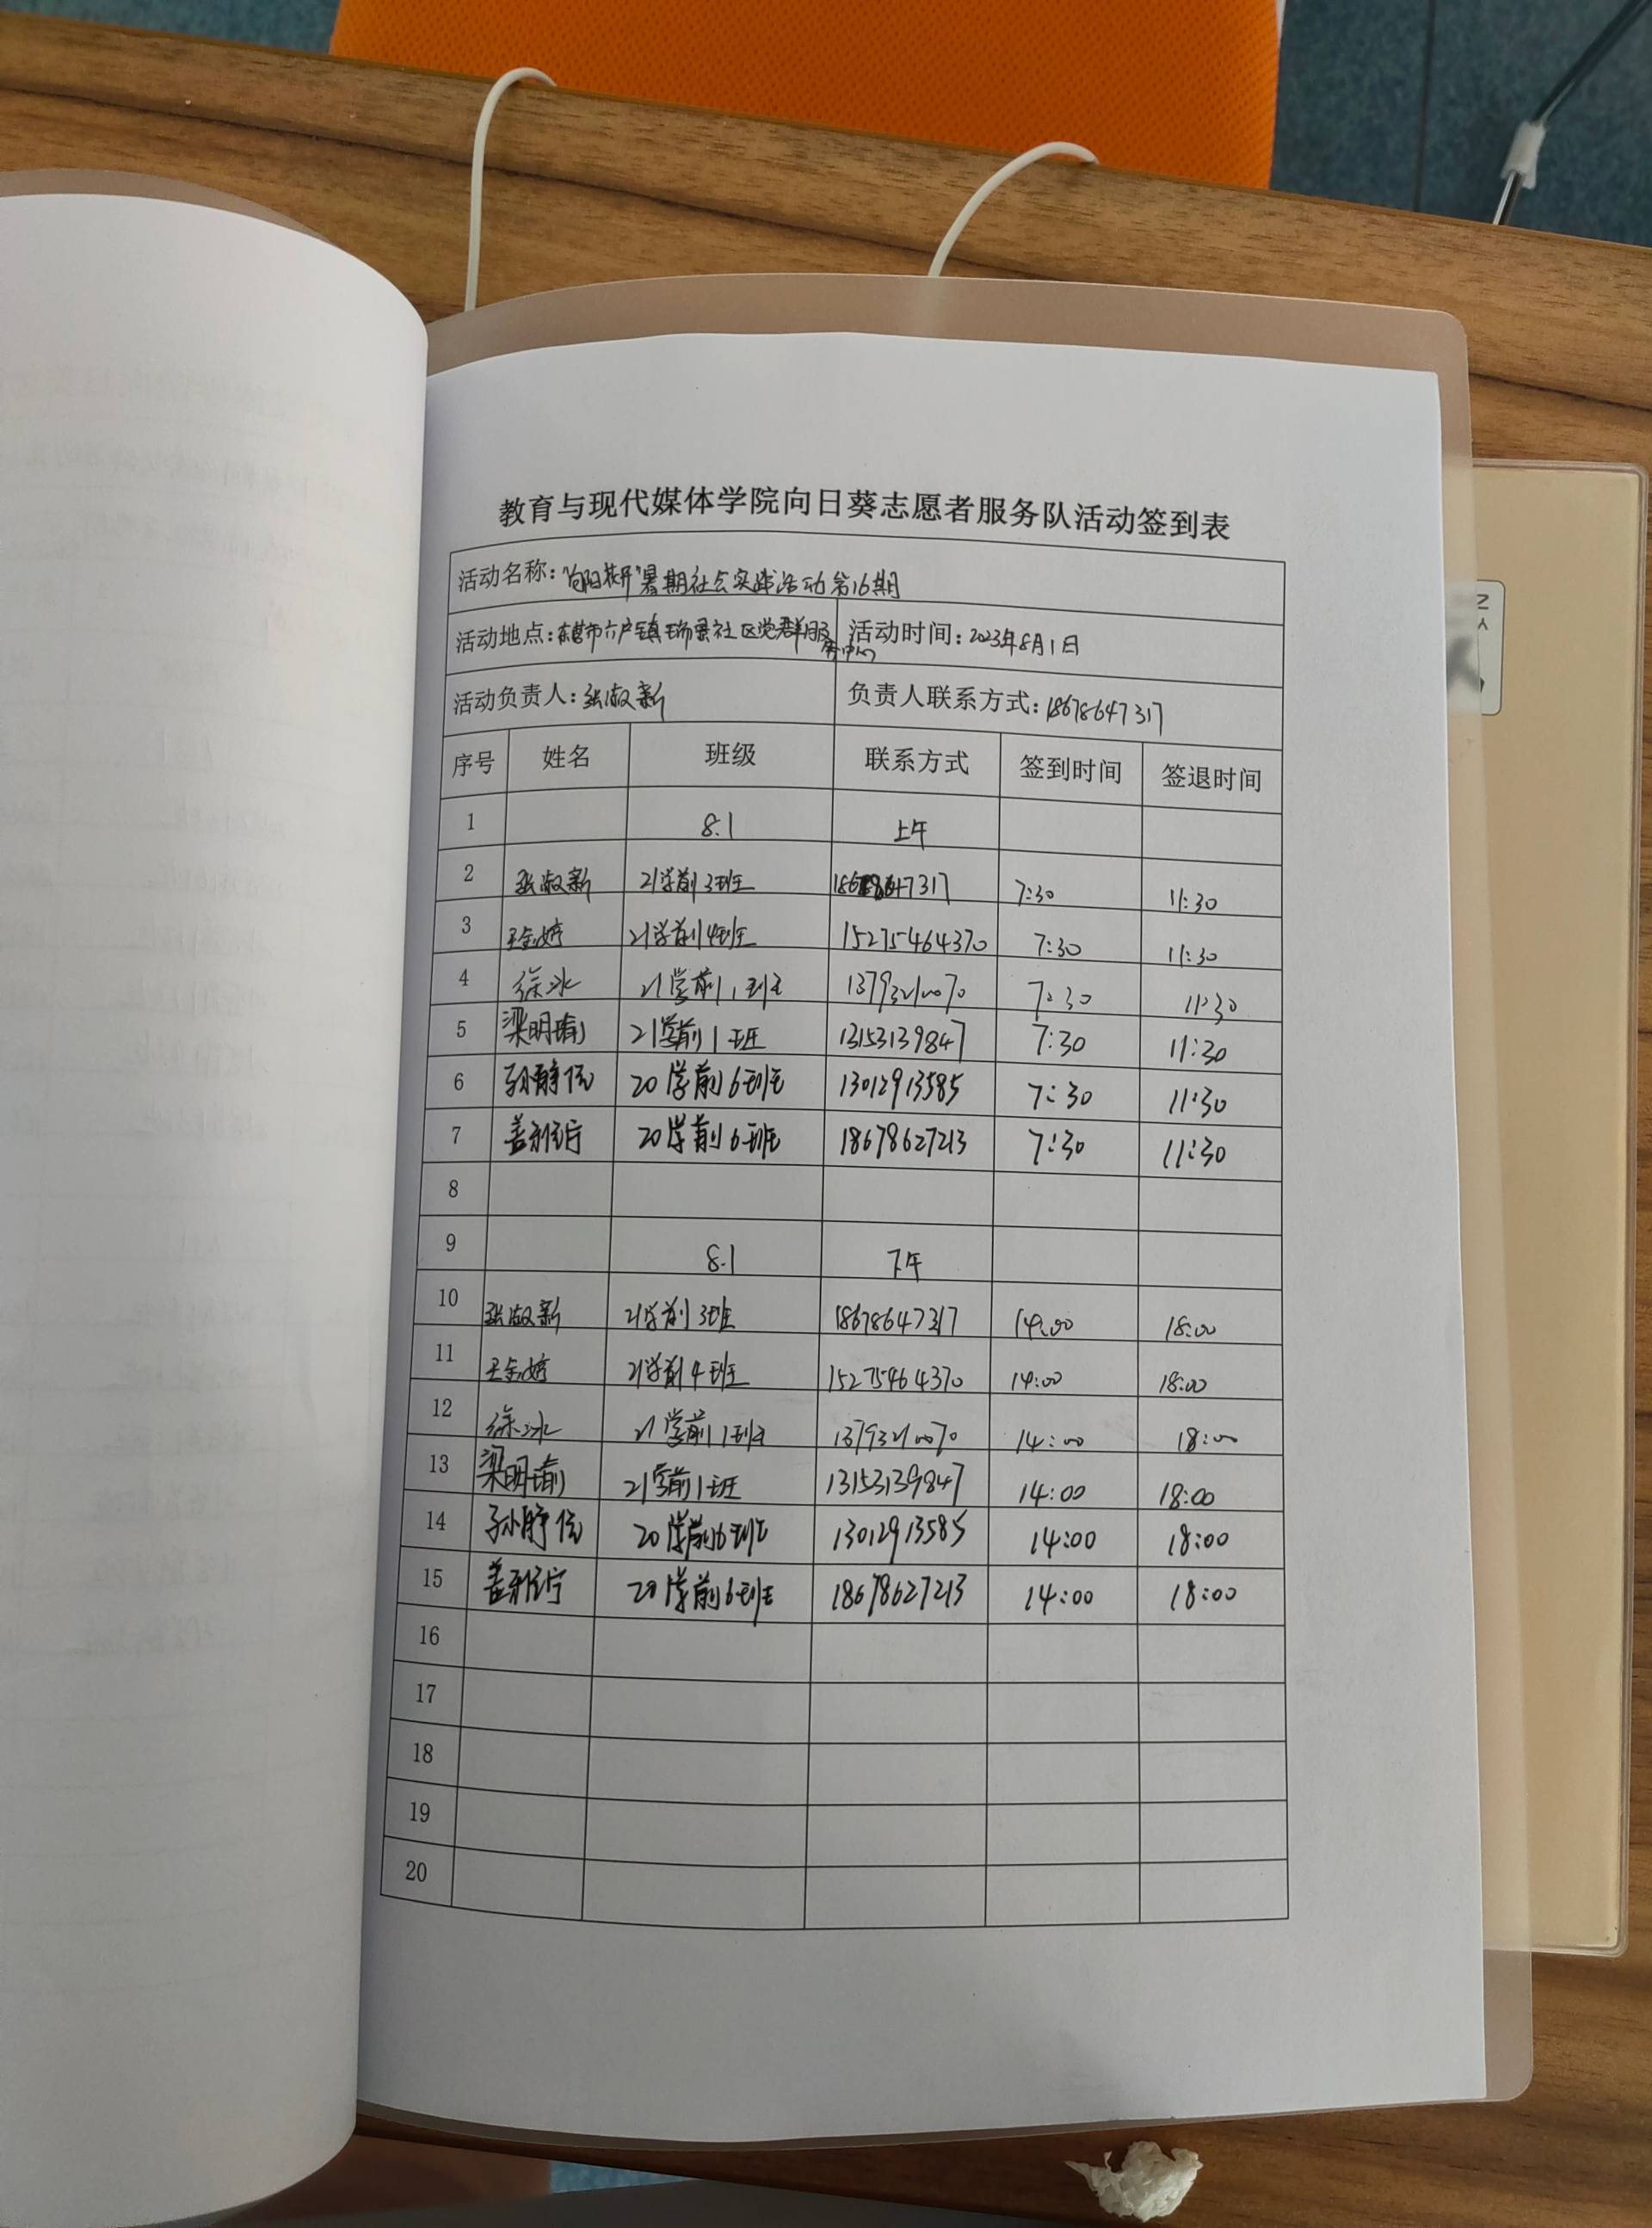 教育与现代媒体学院向日葵志愿者服务队活动签到表
活动名称：“向阳花开”暑期社会实践活动第16期
活动地点：东营市六户镇瑞景社区党群服务中心 活动时间：2023年8月1日
活动负责人：张淑新 负责人联系方式：18678647317
序号 姓名 班级 联系方式 签到时间 签退时间
1 8.1 上午
2 张淑新 21学前3班 18678647317 7:30 11:30
3 21学前4班 15275464370 7:30 11:30
4 徐冰 21学前1班 13793210070 7:30 11:30
5 梁明瑜 21学前1班 13153139847 7:30 11:30
6 20学前6班 13012913585 7:30 11:30
7 20学前6班 18678627213 7:30 11:30
8
9 8.1 下午
10 张淑新 21学前3班 18678647317 14:00 18:00
11 21学前4班 15275464370 14:00 18:00
12 徐冰 21学前1班 13793210070 14:00 18:00
13 梁明瑜 21学前1班 13153139847 14:00 18:00
14 20学前6班 13012913585 14:00 18:00
15 20学前6班 18678627213 14:00 18:00
16
17
18
19
20